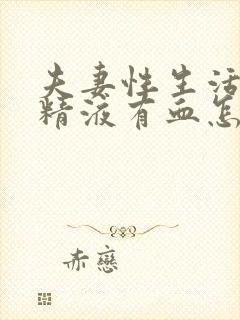 夫妻性生活
精液有血怎
赤戀